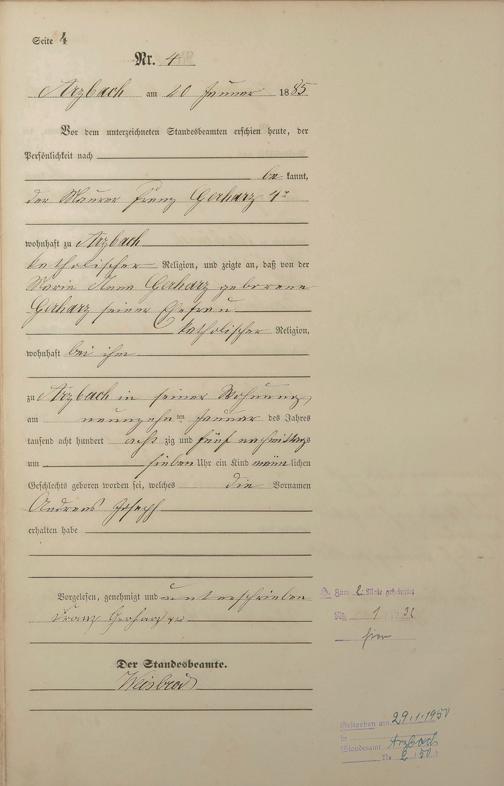 Seite 4
Nr. 4
Arzbach am 20 Januar 1885
Vor dem unterzeichneten Standesbeamten erschien heute, der
Persönlichkeit nach
be kannt,
der Maurer Franz Gerharz 4r
wohnhaft zu Arzbach
katholischer Religion, und zeigte an, daß von der
Maria Anna Gerharz geborene
Gerharz seiner Ehefrau
katholischer Religion,
wohnhaft bei ihm
zu Arzbach in seiner Wohnung
am neunzehnten Januar des Jahres
tausend acht hundert acht zig und fünf nachmittags
um sieben Uhr ein Kind männlichen
Geschlechts geboren worden sei, welches die Vornamen
Andreas Joseph
erhalten habe
Vorgelesen, genehmigt und unterschrieben
Franz Gerharz
Der Standesbeamte.
Weisbrod
Zum 2. Male geheiratet
Nr. 1 31
hier
Gestorben am 29.1.1950
in
Standesamt Arzbach
Nr 2 50